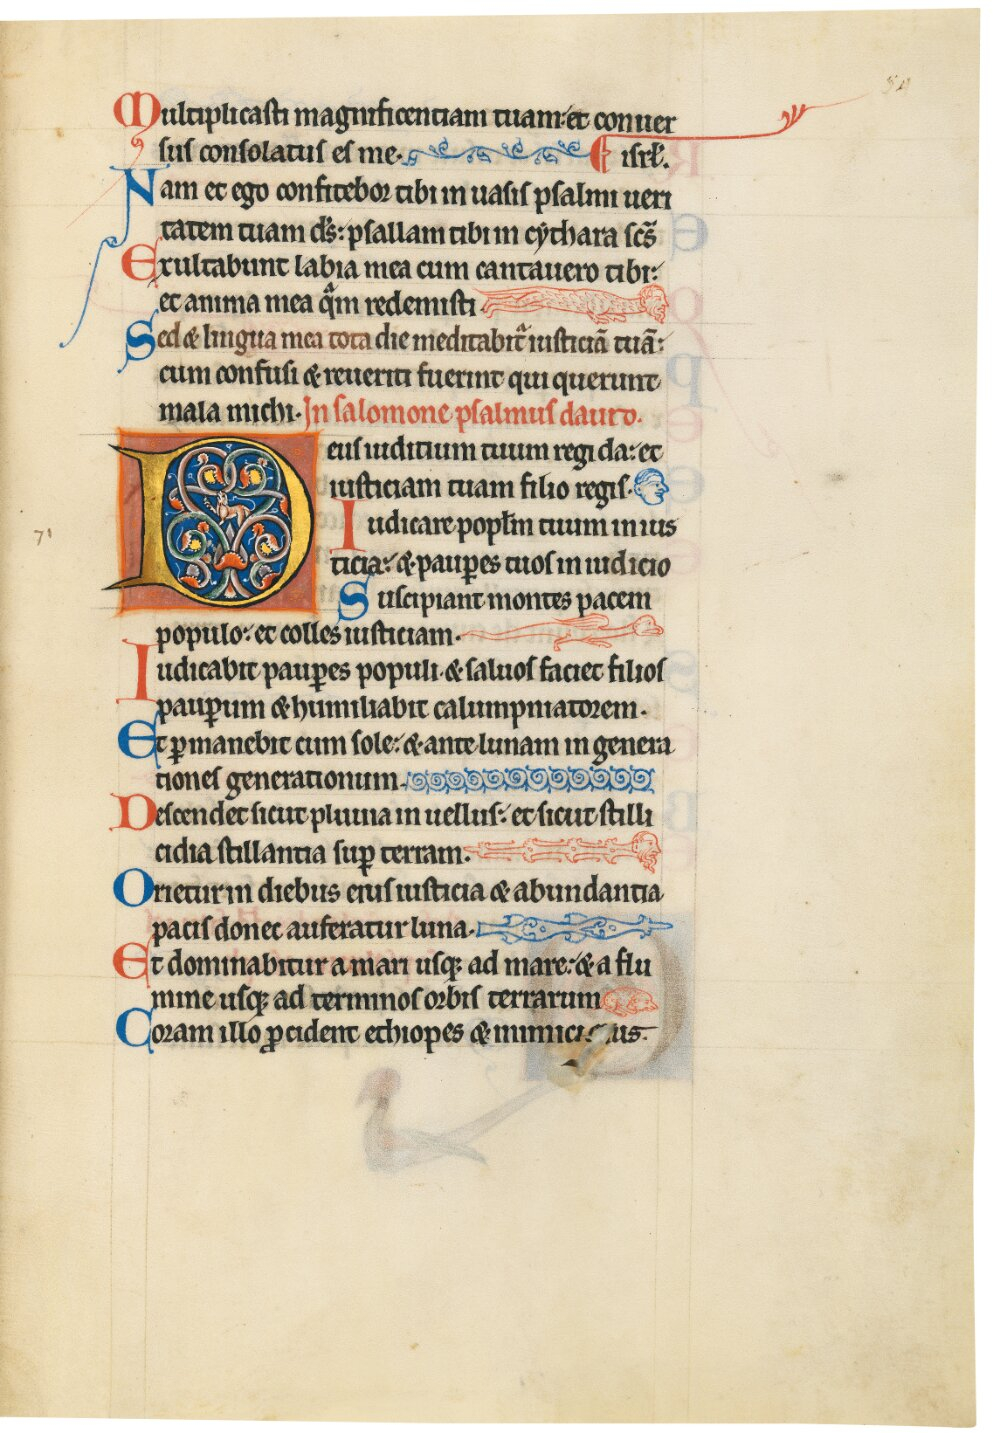 50
Multiplicasti magnificentiam tuam: et conuer
sus consolatus es me. isrl̃.
Nam et ego confitebor tibi in uasis psalmi ueri
tatem tuam ds̃: psallam tibi in cythara scs̃
Exultabunt labia mea cum cantauero tibi:
et anima mea qm̃ redemisti
Sed & lingua mea tota die meditabit̃ iusticiã tuã:
cum confusi & reueriti fuerint qui querunt
mala michi. In salomone psalmus dauid.
Deus iuditium tuum regi da: et
iusticiam tuam filio regis.
71
Iudicare popl̃m tuum in ius
ticia: & paup̲es tuos in iudicio
Suscipiant montes pacem
populo: et colles iusticiam.
Iudicabit paup̲es populi & saluos faciet filios
paup̲um & humiliabit calumpniatorem.
Et p̲manebit cum sole: & ante lunam in genera
tiones generationum.
Descendet sicut pluuia in uellus: et sicut stilli
cidia stillantia sup̲ terram.
Orietur in diebus eius iusticia & abundantia
pacis donec auferatur luna.
Et dominabitur a mari usq; ad mare: & a flu
mine usq; ad terminos orbis terrarum
Coram illo p̲cident ethiopes & inimici